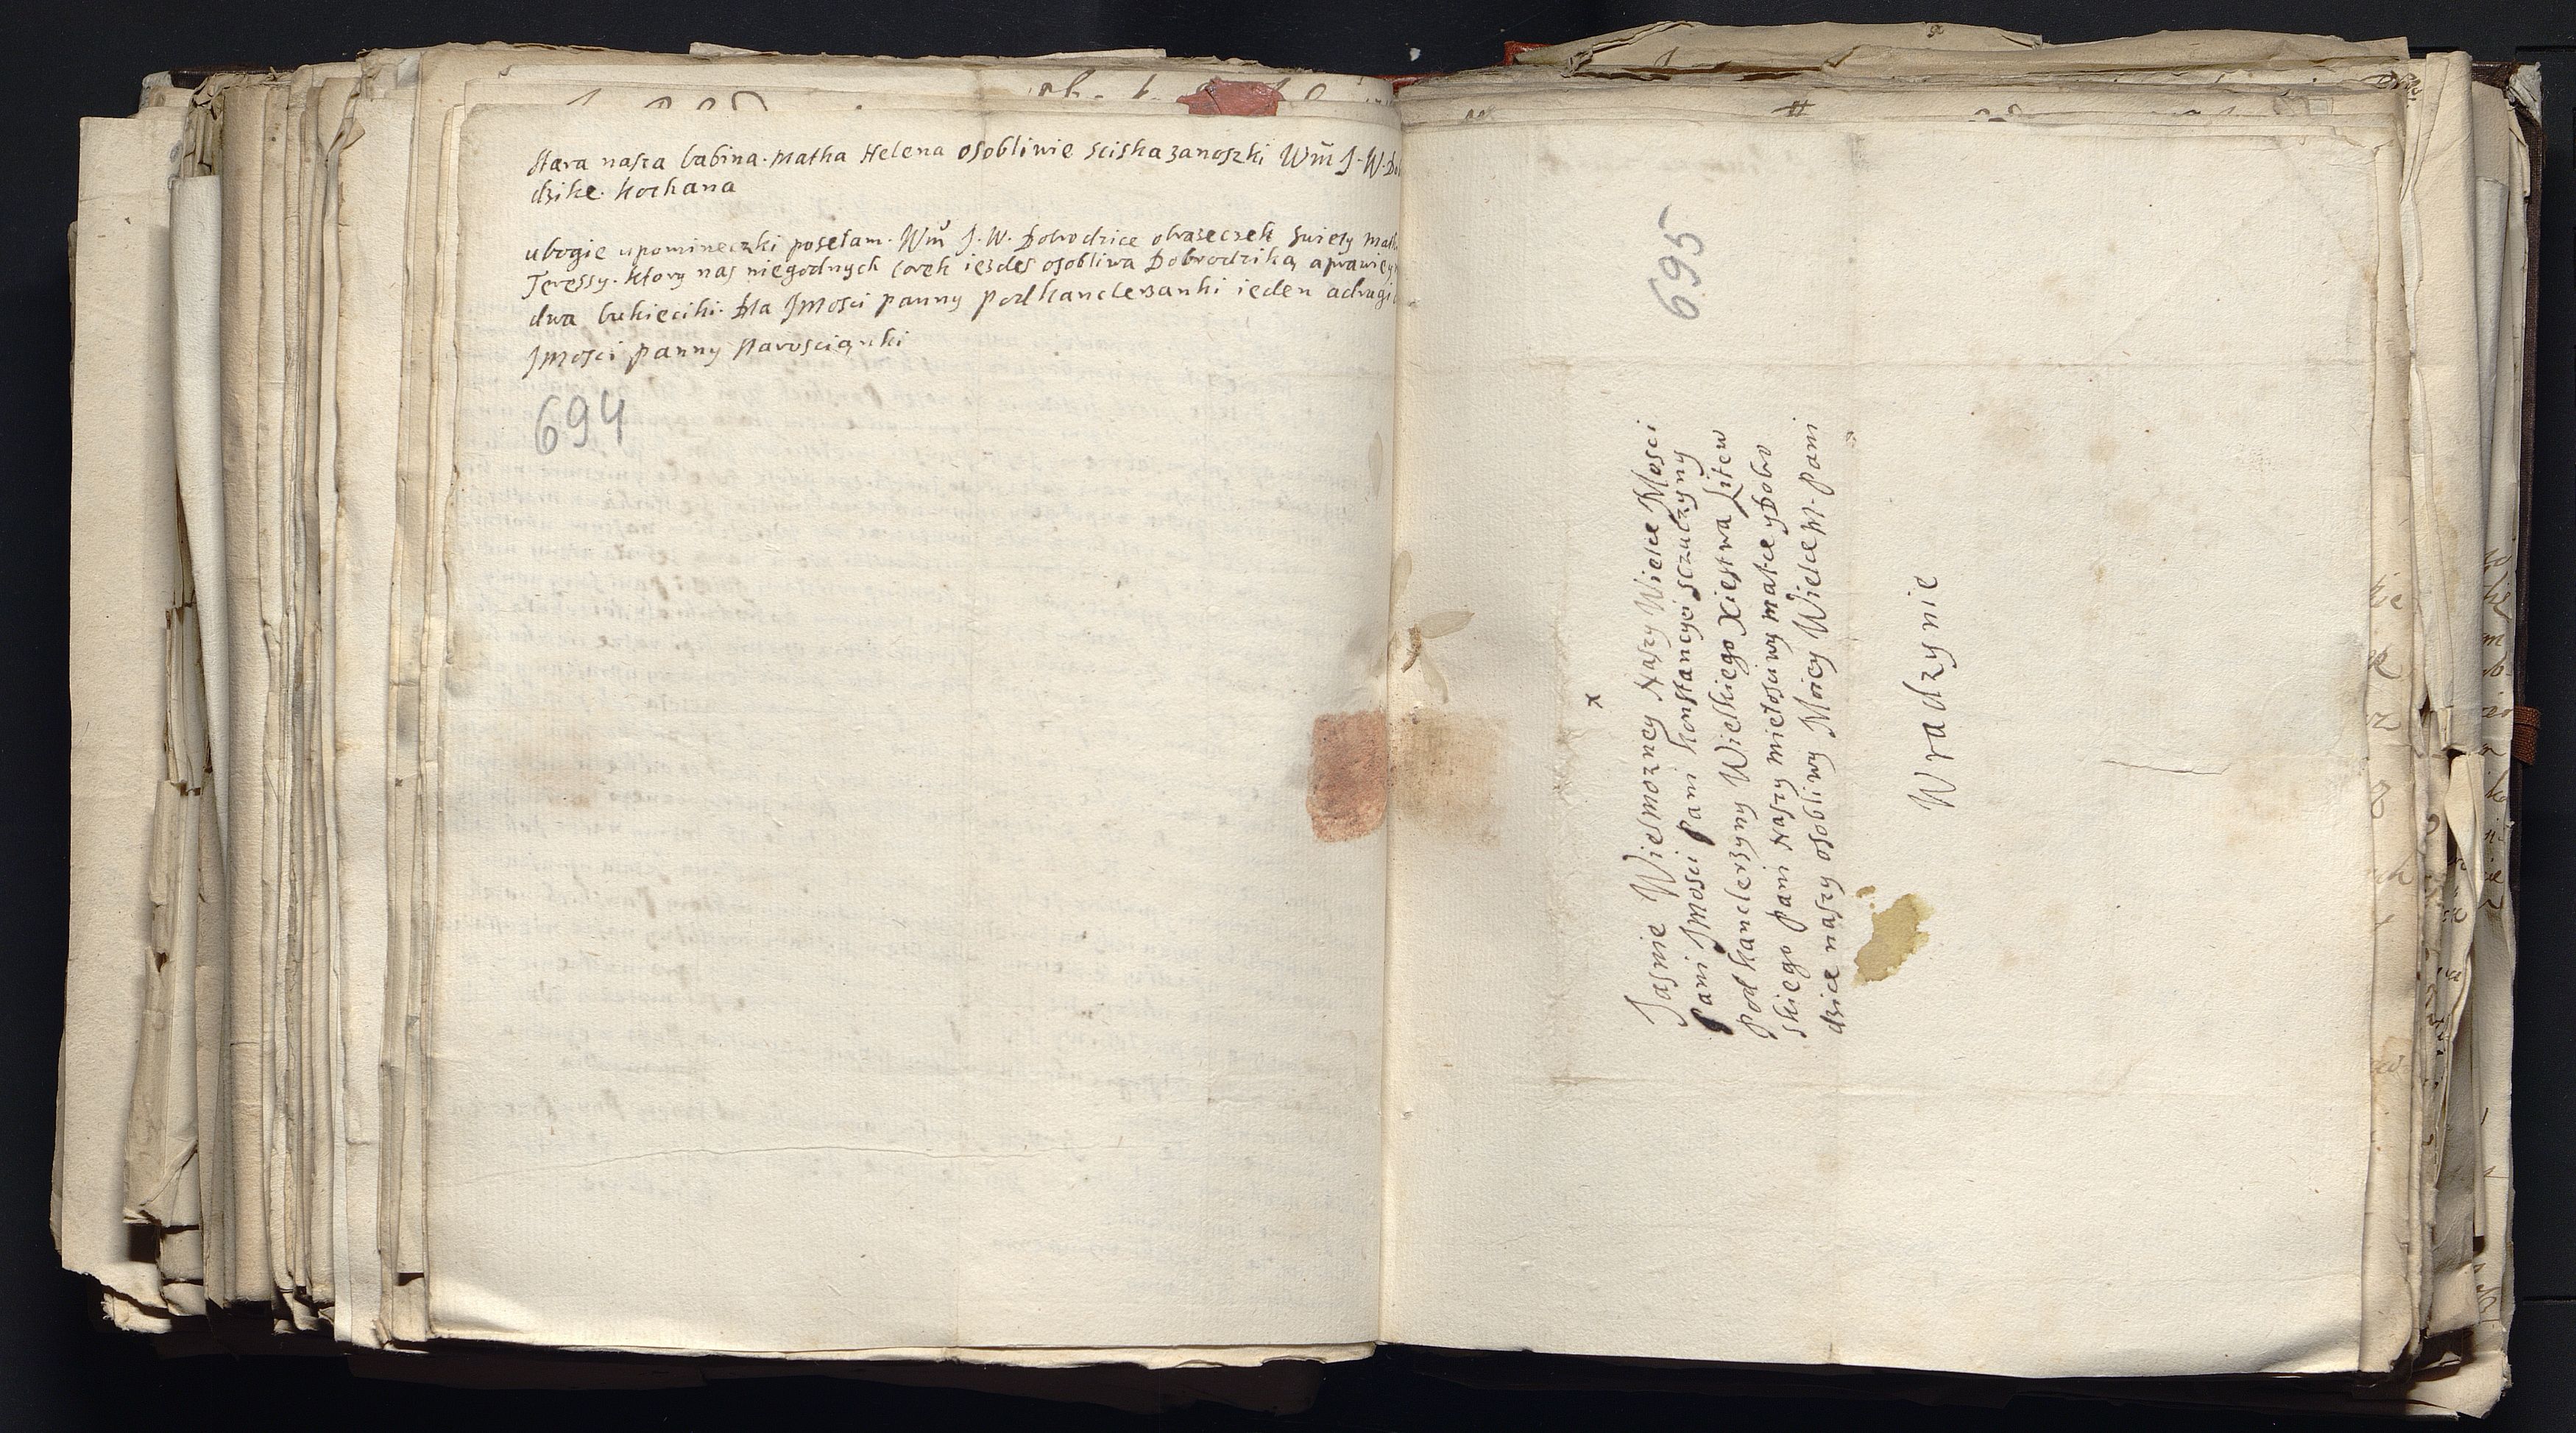 stara nasza babina. matka Helena osobliwie sciska zanoszki Wm̃ J. W. Do
dzike. kochana
ubogie upomineczki posełam. Wm̃ J. W. Dobrodzice obrazeczek swiety matk
Teressy. ktory nas niegodnych corek iezdes osobliwa Dobrodziką, aprawie
dwa bukieciki. Dla Jmosci panny podkanclerzanki ieden adrugi
Jmosci panny starosciąnki
694
695
x
Jasnie Wielmozney Naszy Wielce Mosci
Pani Jmosci Pani konstancyei sczuczyny
Podkanclerzyny Wielkiego Xiestwa Litew
skiego Pani Naszy miełosciwy matce y Dobro
dzice naszy osobliwy Moiey Wielce M. Pani
Wradzynie